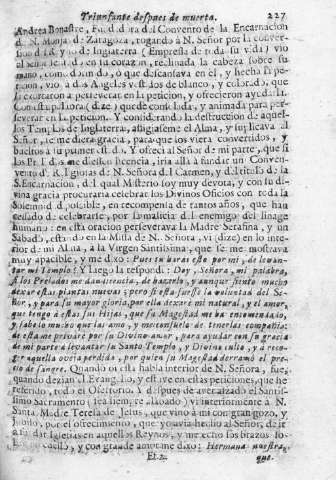 Triunfante despues de muerta. 227
Andrea Bonastre, Fundadora del Convento de la Encarnacion
de N. Monja de Zaragoza, rogando à N. Señor por la conver-
sion del R yno de Inglaterra (Empressa de toda su vida) vio
en su coraçon, reclinada la cabeza sobre su
mano, como dormido, ò que descansava en el, y hecha la pe-
ticion, viò a dos Angeles vestidos de blanco, y colorado, que
la exortaron a perseverar en la peticion, y ofrecieron ayudarla.
Con esta palabra (dize) quedè consolada, y animada para per-
severar en la peticion. Y considerando la destruccion de aque-
llos Templos de Inglaterra, afligiaseme el Alma, y suplicava al
Señor, se me diera gracia, para que los viera convertidos, y
bueltos à su primer estado. Y ofrecì al Señor de mi parte, que si
los Prelados me diessen licencia, iria allà à fundar un Conven-
to de Religiosas de N. Señora del Carmen, y del titulo de la
Encarnacion, del qual Misterio soy muy devota, y con su di-
vina gracia procuraria celebrar los Divinos Oficios con toda la
solemnidad possible, en recompensa de tantos años, que han
cessado de celebrarse, por la malicia del enemigo del linage
humano: en esta oracion perseverava la Madre Serafina, y un
Sabado, estando en la Missa de N. Señora, vi (dize) en lo inte-
rior de mi Alma, à la Virgen Santissima, que se me mostrava
muy apacible, y me dixo: Pues tu haràs esto por mi, de levan-
tar mi Templo? Y luego la respondì: Doy, Señora, mi palabra,
si los Prelados me dan licencia, de hazerlo, y aunque siento mucho
dexar estas plantas nuevas; pero si esta fuesse la voluntad del Se-
ñor, y para su mayor gloria, por ella dexarè mi natural, y el amor,
que tengo à estas sus Hijas, que su Magestad me ha encomendado,
y sabe lo mucho que las amo, y me consuela de tenerlas compañia:
de esta me privarè por su Divino amor, para ayudar con su gracia
de mi parte à levantar su Santo Templo, y Divino culto, y à reco-
ger aquella oveja perdida, por quien su Magestad derramò el pre-
cio de sangre. Quando oì esta habla interior de N. Señora, fue,
quando dezian el Evangelio, y estuve en estas peticiones, que he
referido, todo el Ofertorio. Y despues de aver alzado el Santis-
simo Sacramento (leaileme, recabado) vi interiormente à N.
Santa Madre Teresa de Jesus, que vino à mi con gran gozo, y
jubilo, por el ofrecimiento, que yo avia hecho al Señor, de ir
à fundar Iglesias en aquellos Reynos, y me echò los brazos so-
bre el cuello, y con grande amor me dixo: Hermana nuestra,
Ff 2 que